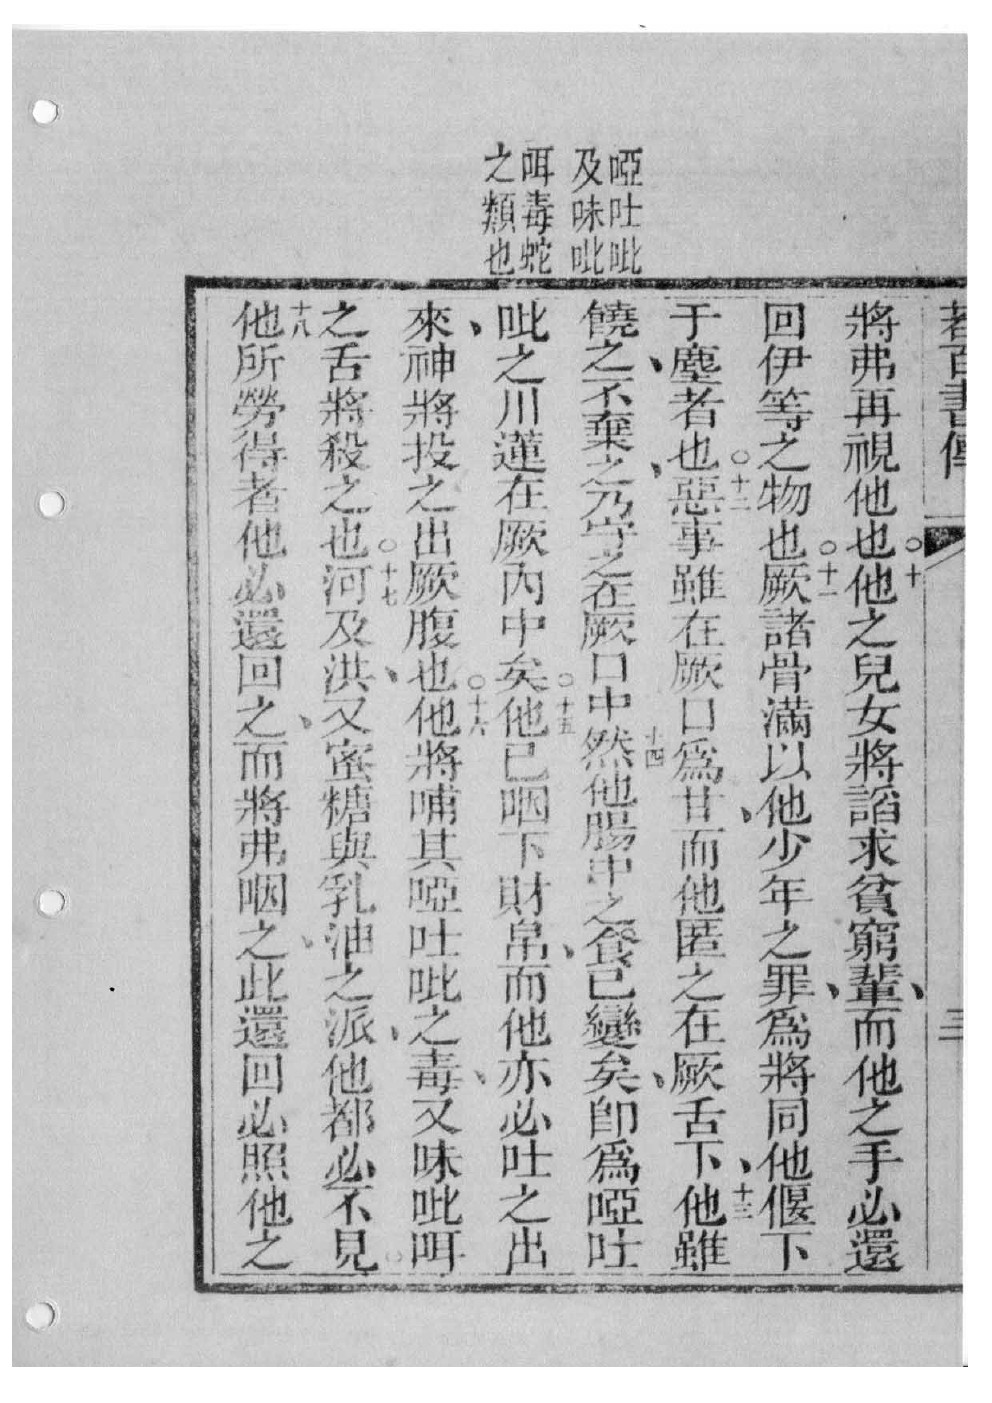 啞吐呲
及味呲
咡毒蛇
之類也
若百書傳
三
將弗再視他也○十他之兒女將謟求貧窮輩而他之手必還
回伊等之物也○十一厥諸骨滿以他少年之罪為將同他偃下
于塵者也○十二惡事雖在厥口為甘而他匿之在厥舌下十三他雖
饒之不棄之乃守之在厥口中十四然他腸中之餐已變矣即為啞吐
呲之川蓮在厥內中矣○十五他已咽下財帛而他亦必吐之出
來神將投之出厥腹也○十六他將哺其啞吐呲之毒又味呲咡
之舌將殺之也○十七河及洪又蜜糖與乳油之派他都必不見
十八他所勞得者他必還回之而將弗咽之此還回必照他之